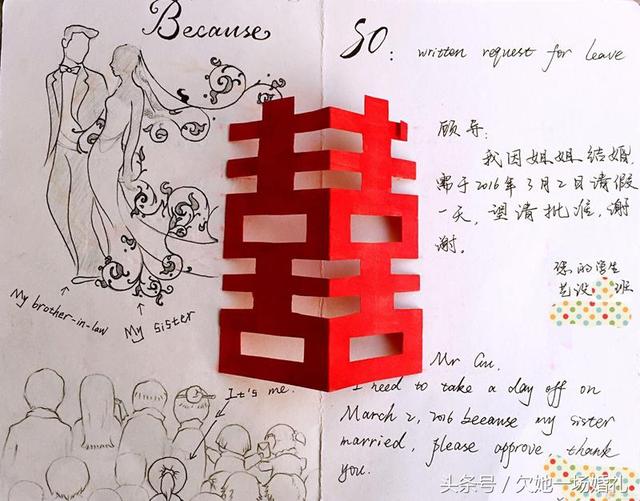 Because
SO: written request for leave
顾导:
我因姐姐结婚,
需于2016年3月2日请假
一天,望请批准,谢
谢。
您的学生
艺设 班
My brother-in-law
My sister
It's me.
喜喜
Mr Gu.
I need to take a day off on
March 2, 2016 because my sister
married, please approve, thank
you.
头条号 / 欠她一场婚礼